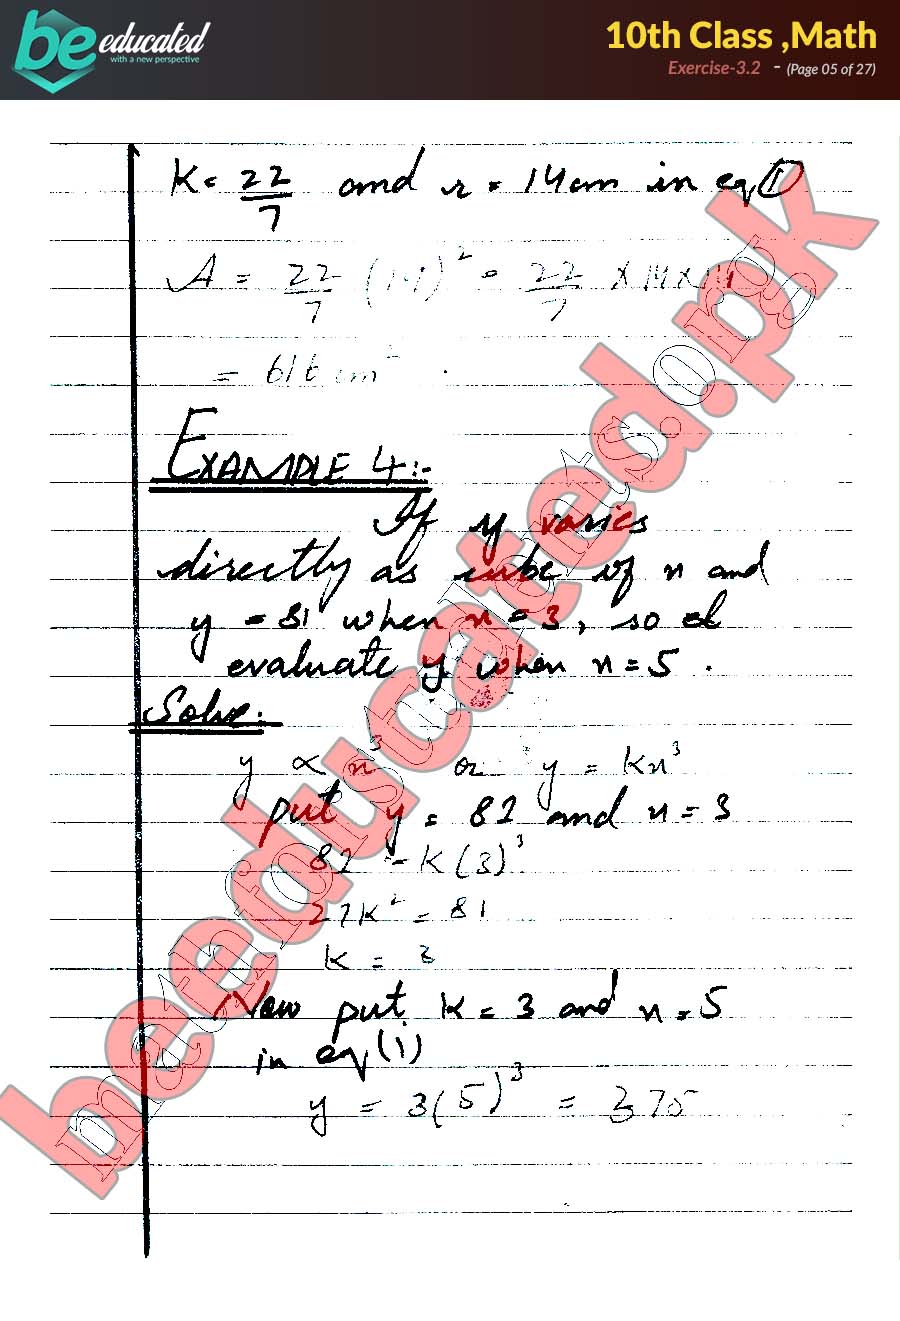 be educated
with a new perspective
10th Class ,Math
Exercise-3.2 - (Page 05 of 27)
K = 22/7 and r = 14cm in eq ①
A = 22/7 (14)² = 22/7 × 14 × 14
= 616 cm²
EXAMPLE 4:-
If y varies
directly as cube of x and
y = 81 when x = 3, so
evaluate y when x = 5 .
Solve:
y ∝ x³ or y = kx³
put y = 81 and x = 3
81 = K(3)³
27K² = 81
K = 3
Now put K = 3 and x = 5
in eq (i)
y = 3(5)³ = 375
beeducated.pk